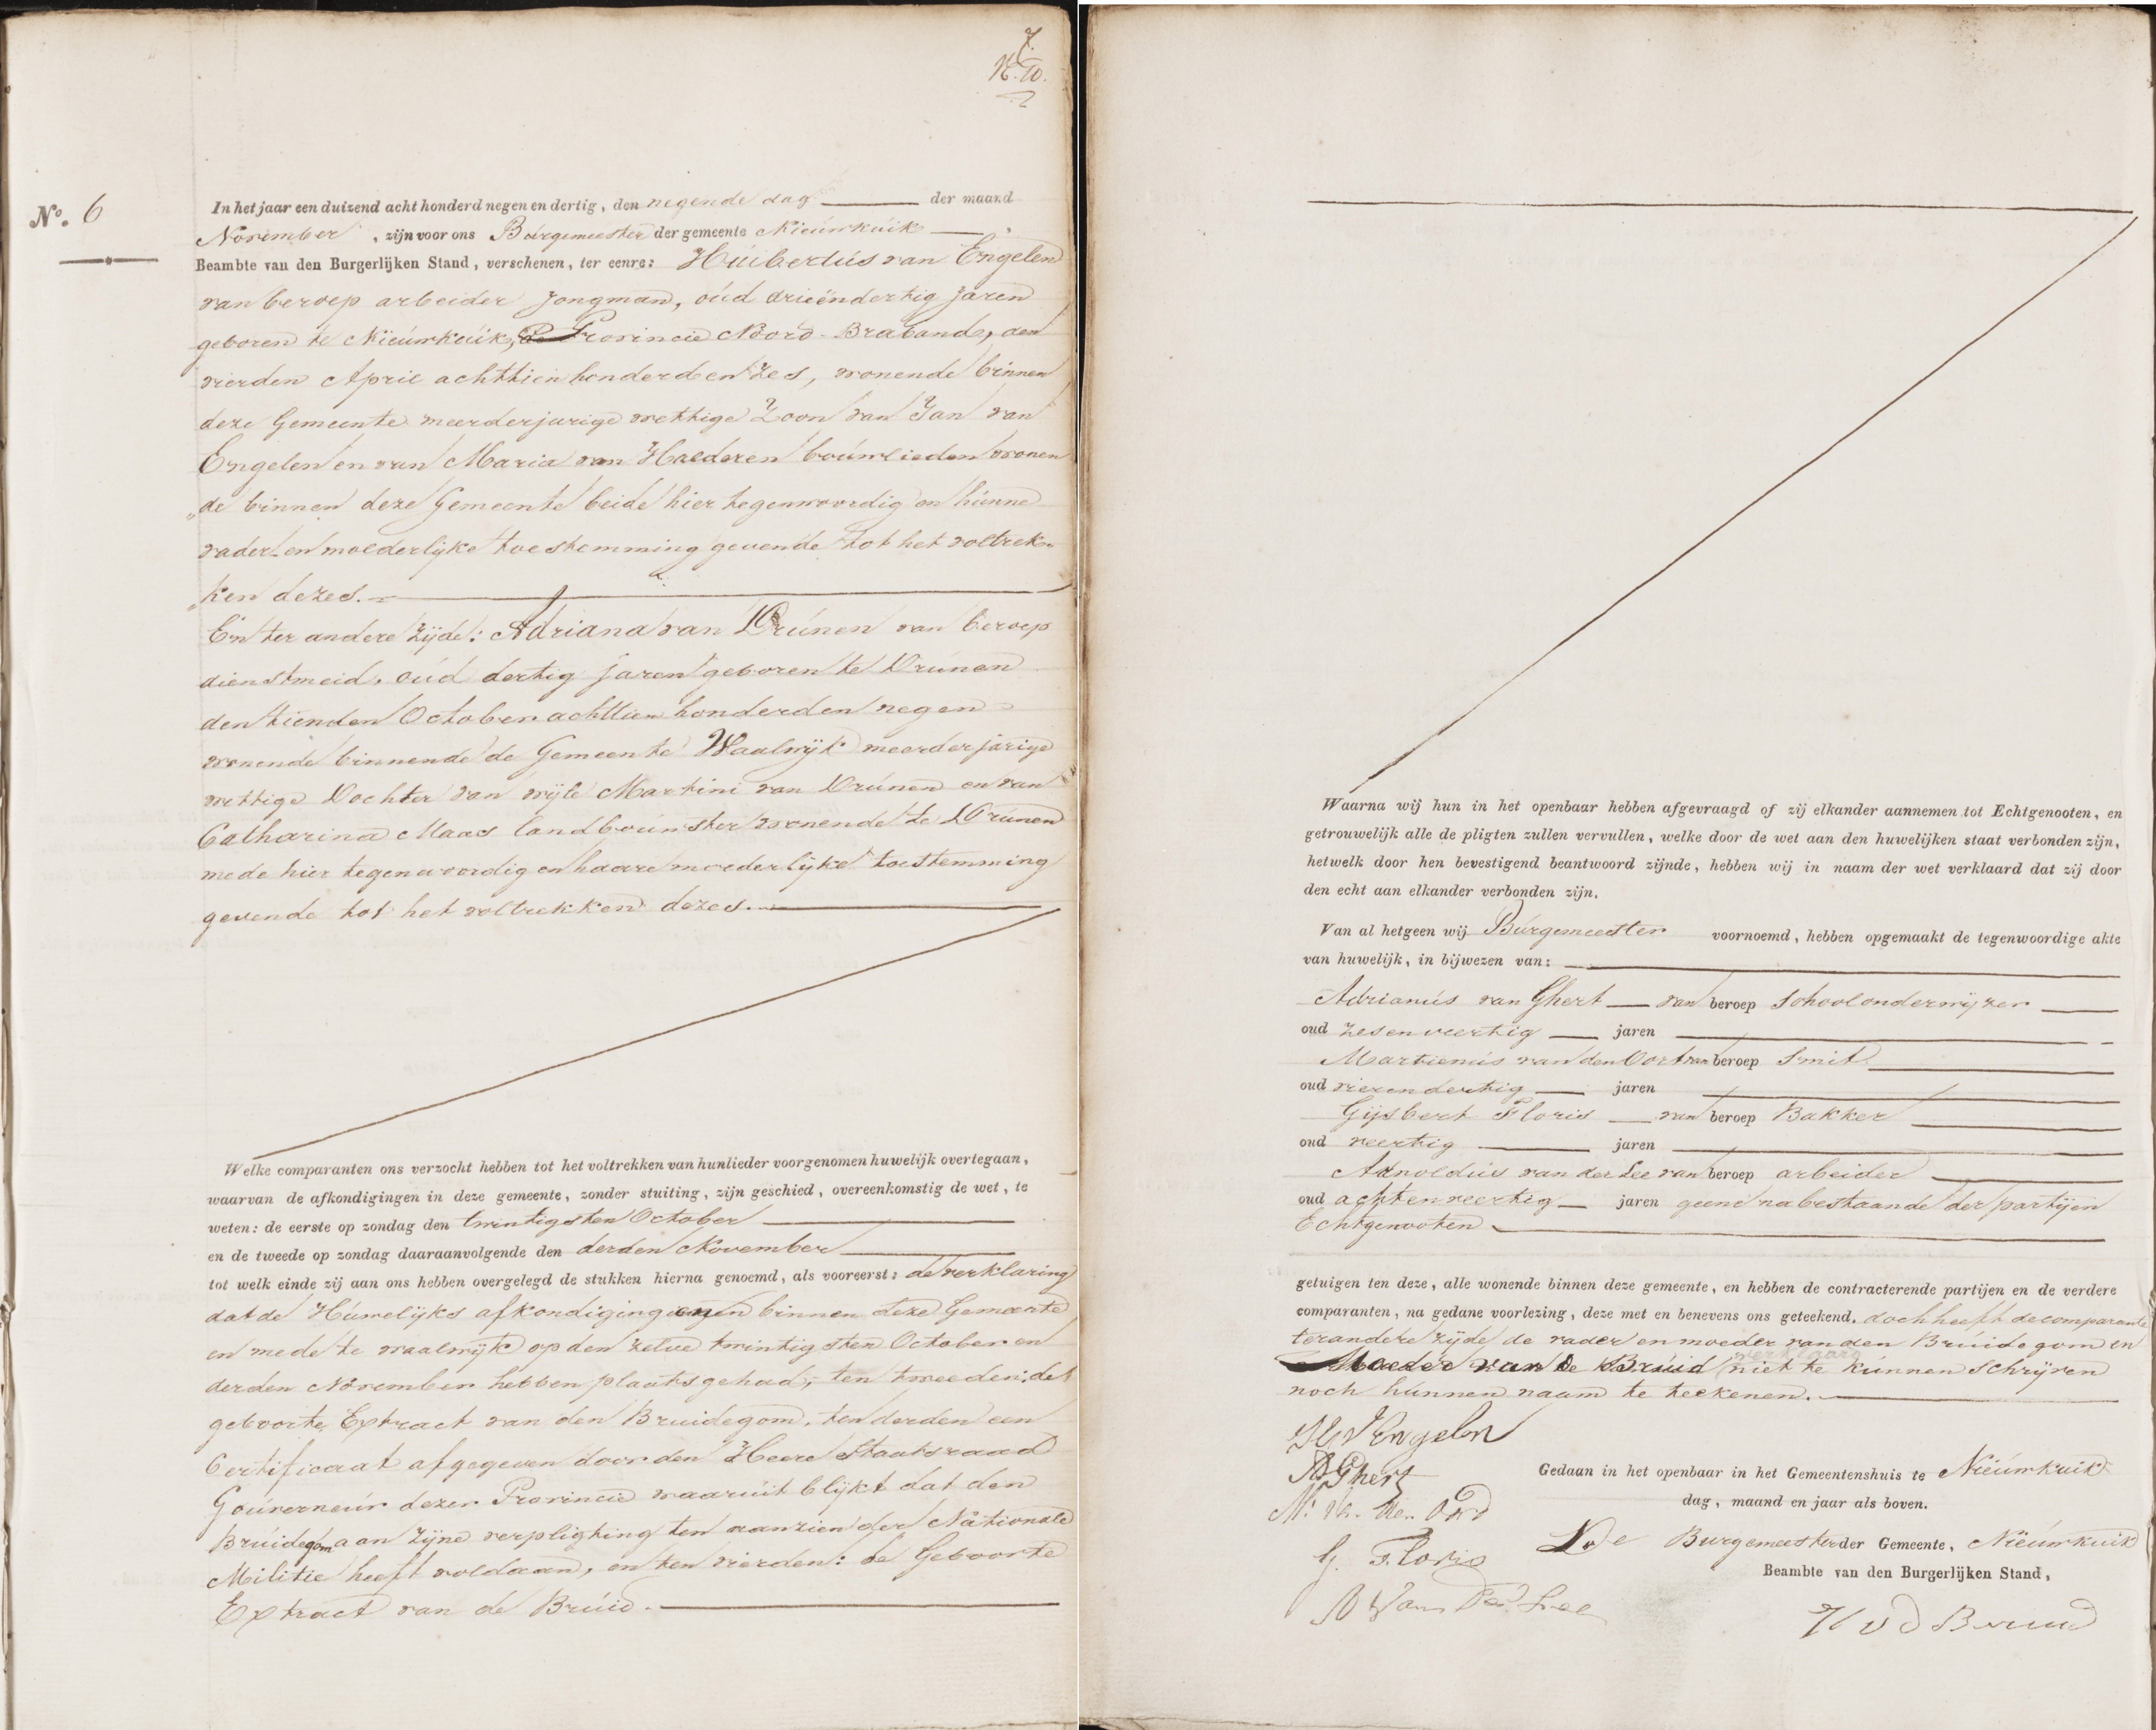 7.
No. 6
In het jaar een duizend acht honderd negen en dertig, den negende dag der maand
November, zijn voor ons Burgemeester der gemeente Nieúwkúik
Beambte van den Burgerlijken Stand, verschenen, ter eenre: Húibertús van Engelen
van beroep arbeider Jongman, oúd drieëndertig jaren
geboren te Nieúwkúik, Provincie Noord-Braband, den
vierden April achttien honderd en zes, wonende binnen
deze Gemeente meerderjarige wettige Zoon van Jan van
Engelen en van Maria van Halderen boúwlieden wonen
„de binnen deze Gemeente beide hier tegenwoordig en húnne
vader en moederlijke toestemming gevende tot het voltrek„
„ken dezes.
En ter andere zijde: Adriana van Drúnen van beroep
dienstmeid, oúd dertig jaren geboren te Drúnen
den tienden October achttien honderd en negen
wonende binnende de Gemeente Waalwijk meerderjarige
wettige Dochter van wijle Martini van Drúnen en van
Catharina Maas landboúwster wonende te Drúnen
mede hier tegenwoordig en haare moederlijke toestemming
gevende tot het voltrekken dezes.
Welke comparanten ons verzocht hebben tot het voltrekken van hunlieder voorgenomen huwelijk overtegaan,
waarvan de afkondigingen in deze gemeente, zonder stuiting, zijn geschied, overeenkomstig de wet, te
weten: de eerste op zondag den twintigsten October
en de tweede op zondag daaraanvolgende den derden November
tot welk einde zij aan ons hebben overgelegd de stukken hierna genoemd, als vooreerst: de verklaring
dat de Húwelijks afkondigingen binnen deze Gemeente
en mede te waalwijk op den zelve twintigsten October en
derden November hebben plaats gehad, ten tweeden: det
geboorte Extract van den Bruidegom, ten derden een
Certificaat afgegeven door den Heere Staatsraad
Goúverneúr dezer Provincie waarúit blijkt dat den
Brúidegom aan zijne verpligting ten aanzien der Nationale
Militie heeft voldaan, en ten vierden: de Geboorte
Extract van de Brúid.
Waarna wij hun in het openbaar hebben afgevraagd of zij elkander aannemen tot Echtgenooten, en
getrouwelijk alle de pligten zullen vervullen, welke door de wet aan den huwelijken staat verbonden zijn,
hetwelk door hen bevestigend beantwoord zijnde, hebben wij in naam der wet verklaard dat zij door
den echt aan elkander verbonden zijn.
Van al hetgeen wij Búrgemeester voornoemd, hebben opgemaakt de tegenwoordige akte
van huwelijk, in bijwezen van:
Adrianús van Ghert van beroep Schoolonderwijzer
oud zesenveertig jaren
Martienús van den Oort van beroep Smit
oud vierendertig jaren
Gijsbert Floris van beroep Bakker
oud veertig jaren
Arnoldús van der Lee van beroep arbeider
oud achtenveertig jaren geene nabestaande der partijen
Echtgenooten
getuigen ten deze, alle wonende binnen deze gemeente, en hebben de contracterende partijen en de verdere
comparanten, na gedane voorlezing, deze met en benevens ons geteekend. doch heeft de comparante
ter andere zijde de vader en moeder van den Brúidegom en
Moeder van de Brúid verklaard niet te kúnnen schrijven
noch húnnen naam te teekenen.
H V Engelen
A V Ghert
M: V. den Oord
G. Floris
A Van Der Lee
Gedaan in het openbaar in het Gemeentenshuis te Nieúwkúik
dag, maand en jaar als boven.
De Burgemeester der Gemeente, Nieúwkúik
Beambte van den Burgerlijken Stand,